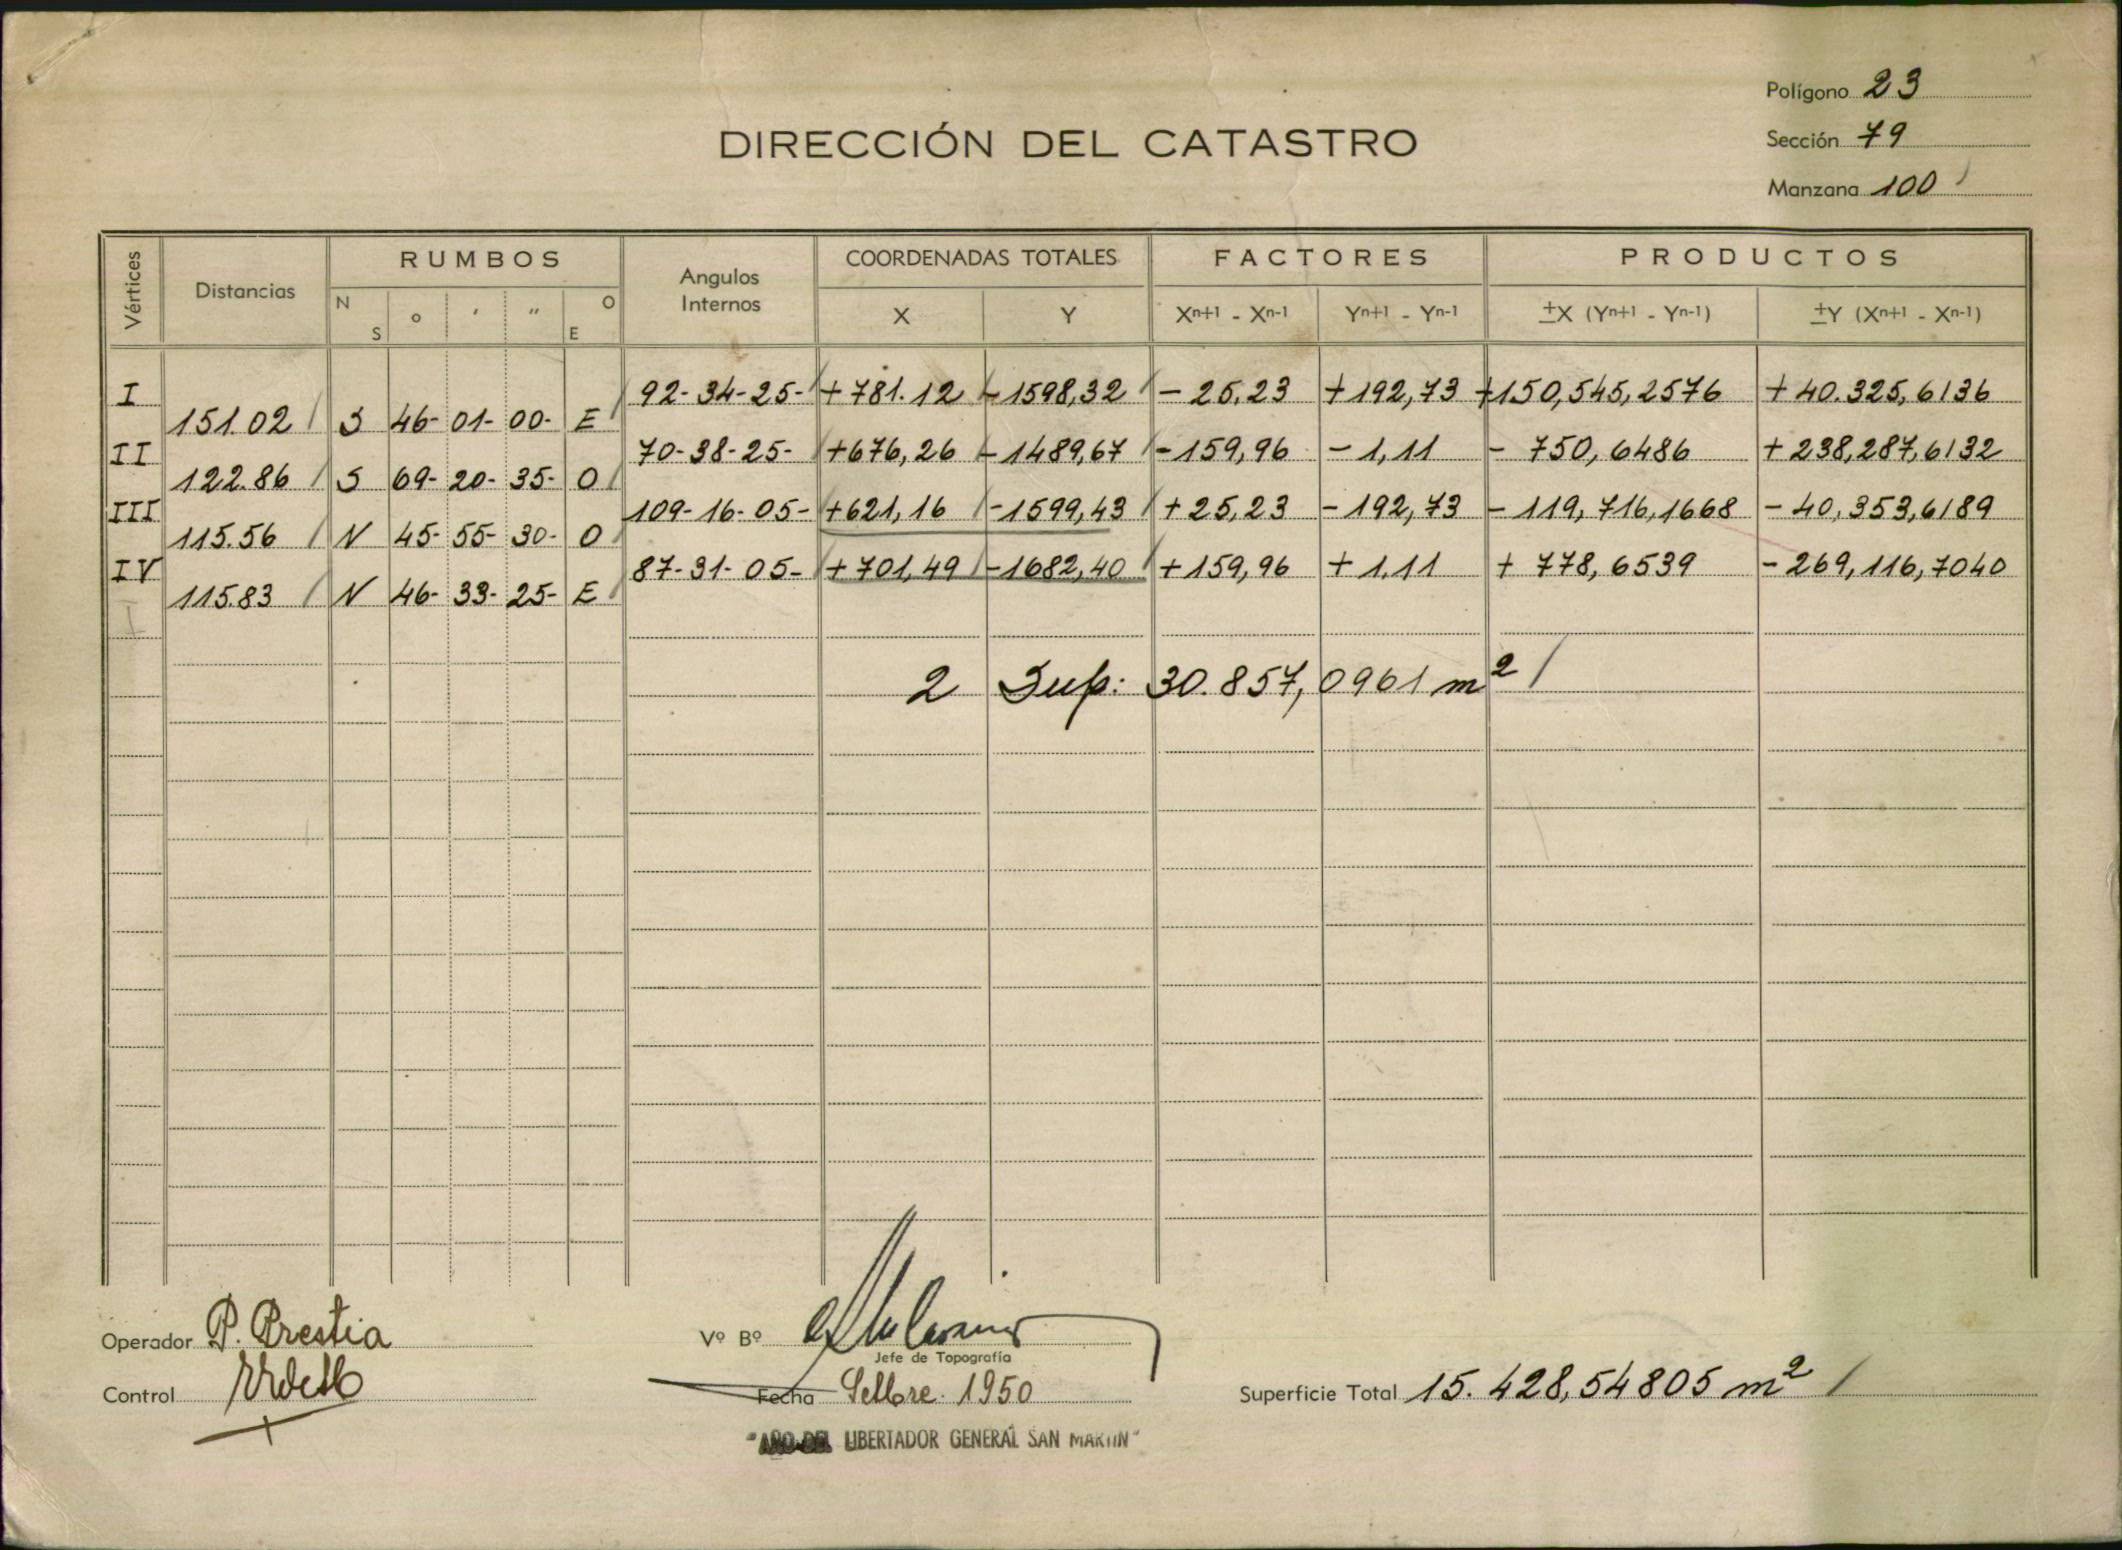 Polígono 23
DIRECCIÓN DEL CATASTRO
Sección 79
Manzana 100
Vértices Distancias RUMBOS N S ° ' " O E Angulos Internos COORDENADAS TOTALES X Y FACTORES Xn+1 - Xn-1 Yn+1 - Yn-1 PRODUCTOS ±X (Yn+1 - Yn-1) ±Y (Xn+1 - Xn-1)
I 92-34-25- +781.12 -1598,32 -25,23 +192,73 +150,545,2576 +40.325,6136
151.02 S 46- 01- 00- E
II 70-38-25- +676,26 -1489,67 -159,96 -1,11 -750,6486 +238,287,6132
122.86 S 69- 20- 35- O
III 109-16-05- +621,16 -1599,43 +25,23 -192,73 -119,716,1668 -40,353,6189
115.56 N 45- 55- 30- O
IV 87-31-05- +701,49 -1682,40 +159,96 +1,11 +778,6539 -269,116,7040
115.83 N 46- 33- 25- E
I
2 Sup: 30.857,0961 m²
Operador P. Prestia
Vº Bº
Jefe de Topografía
Control
Fecha Setbre. 1950
Superficie Total 15.428,54805 m²
"AÑO DEL LIBERTADOR GENERAL SAN MARTIN"